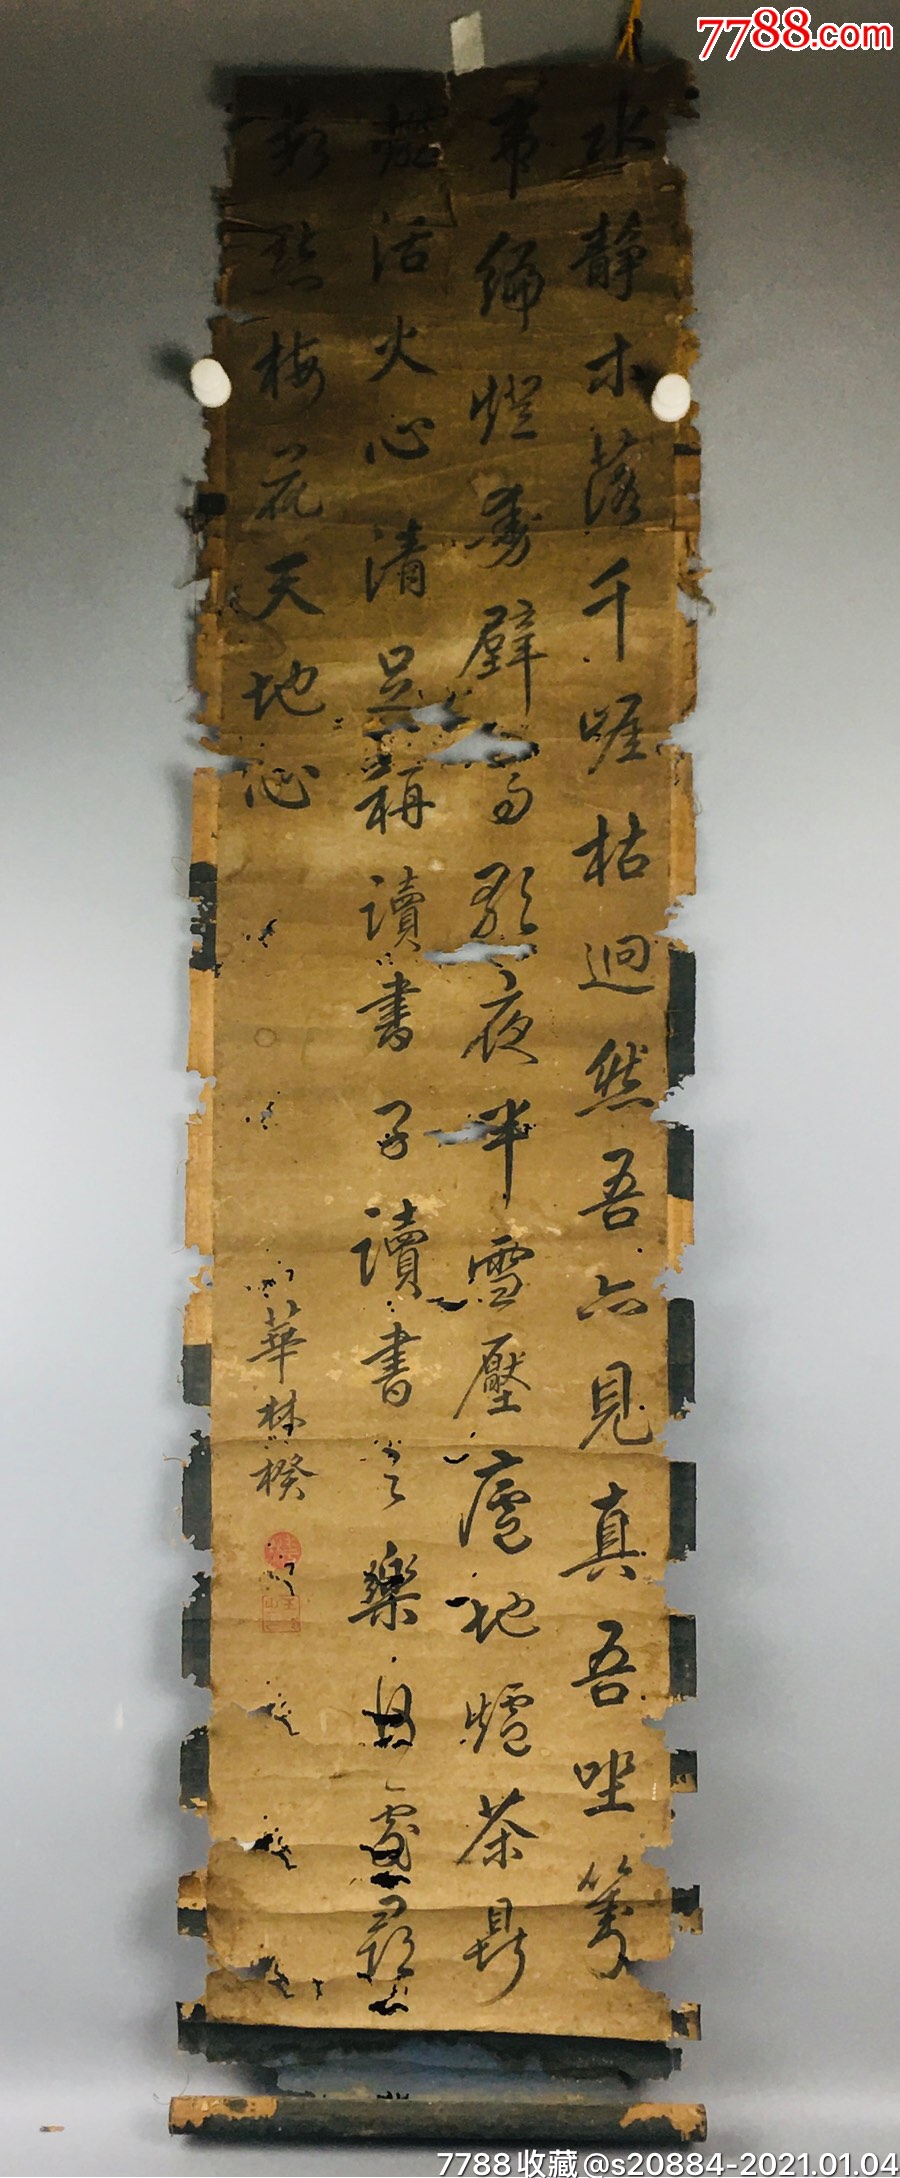 7788.com
水靜木落千崖枯迥然吾亦見真吾坐對
韋編燈動壁高歌夜半雪壓廬地爐茶鼎
烹活火心清足稱讀書子讀書之樂何處尋
數點梅花天地心
華林楑
7788收藏@s20884-2021.01.04